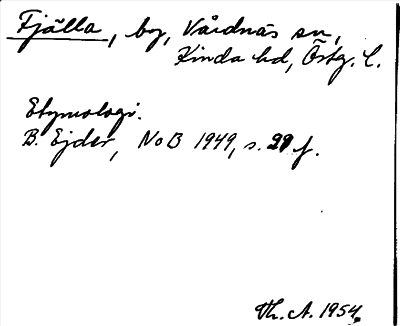 Fjälla, by, Vårdnäs sn,
Kinda hd, Östg. l.
Etymologi.
B. Ejder, NoB 1949, s. 29 f.
Th. A. 1954.